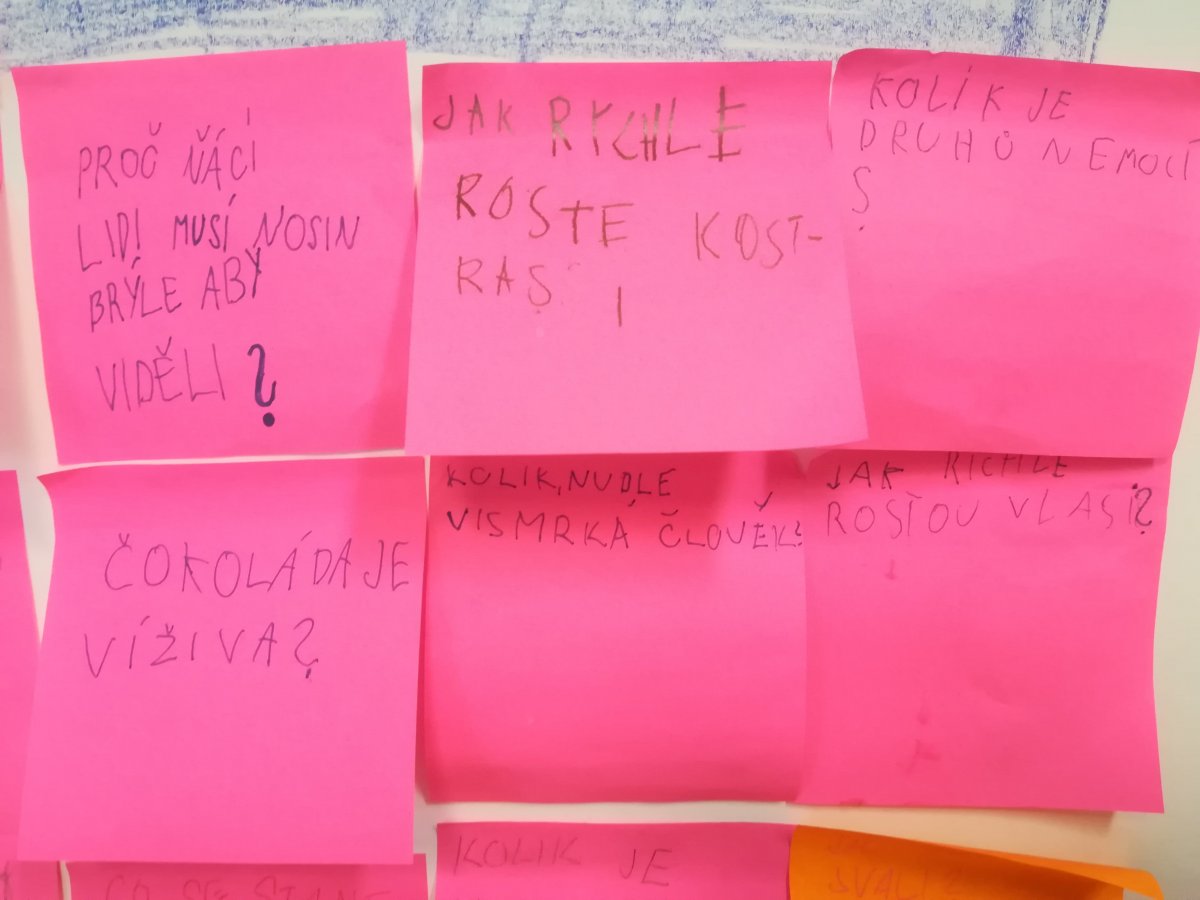 PROČ ŇÁCÍ
LIDI MUSÍ NOSIN
BRÝLE ABY
VIDĚLI ?
JAK RYCHLE
ROSTE KOST-
RAS
KOLIK JE
DRUHŮ NEMOCÍ
?
ČOKOLÁDA JE
VÍŽIVA?
KOLIK NUDLE
VISMRKÁ ČLOVĚK?
JAK RICHLE
ROSTOU VLASI?
CO SE STANE
KOLIK JE
SVALI